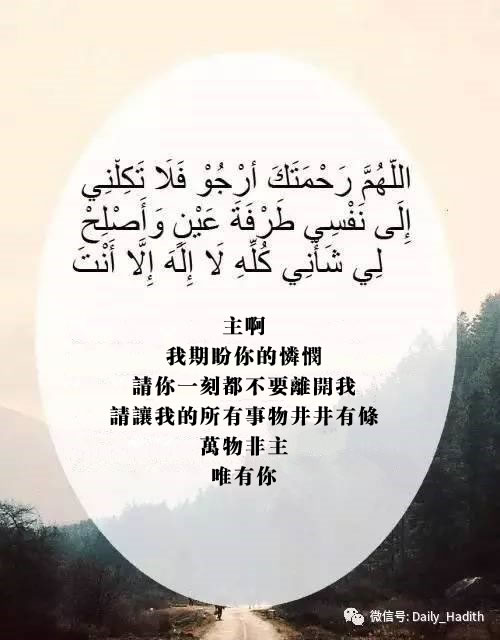 اللّهُمَّ رَحْمَتَكَ أرْجُوْ فَلَا تَكِلْنِي
إِلَى نَفْسِي طَرْفَةَ عَيْنٍ وَأَصْلِحْ
لِي شَأْنِي كُلِّهِ لَا إِلَهَ إِلَّا أَنْتَ
主啊
我期盼你的憐憫
請你一刻都不要離開我
請讓我的所有事物井井有條
萬物非主
唯有你
微信号: Daily_Hadith